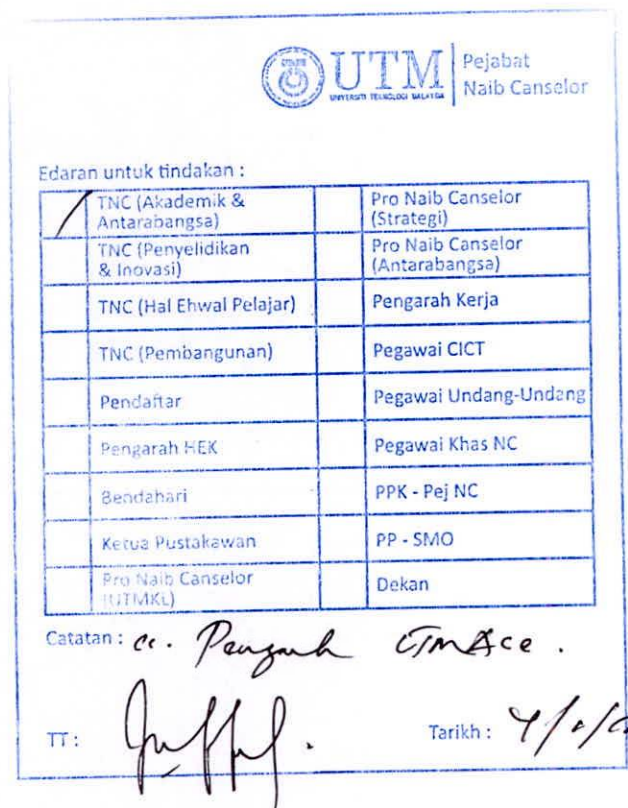 UTM
UNIVERSITI TEKNOLOGI MALAYSIA
Pejabat
Naib Canselor
Edaran untuk tindakan :
TNC (Akademik &
Antarabangsa)
Pro Naib Canselor
(Strategi)
TNC (Penyelidikan
& Inovasi)
Pro Naib Canselor
(Antarabangsa)
TNC (Hal Ehwal Pelajar)
Pengarah Kerja
TNC (Pembangunan)
Pegawai CICT
Pendaftar
Pegawai Undang-Undang
Pengarah HEK
Pegawai Khas NC
Bendahari
PPK - Pej NC
Ketua Pustakawan
PP - SMO
Pro Naib Canselor
(UTMKL)
Dekan
Catatan : cc. Pengarah UTMACE .
TT :
Tarikh :